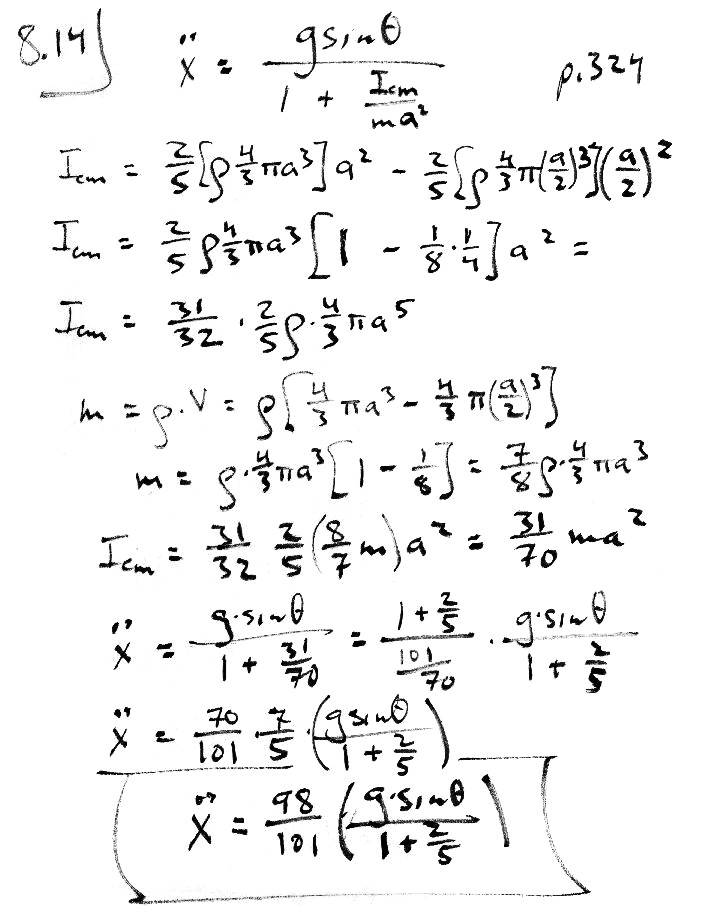 8.14) ẍ = g sinθ / (1 + Icm/ma²) p.324
Icm = 2/5[ρ 4/3 πa³]a² - 2/5[ρ 4/3 π(a/2)³](a/2)²
Icm = 2/5 ρ 4/3 πa³[1 - 1/8 · 1/4]a² =
Icm = 31/32 · 2/5 ρ · 4/3 πa⁵
m = ρ·V = ρ[4/3 πa³ - 4/3 π(a/2)³]
m = ρ · 4/3 πa³[1 - 1/8] = 7/8 ρ · 4/3 πa³
Icm = 31/32 2/5 (8/7 m)a² = 31/70 ma²
ẍ = g·sinθ / (1 + 31/70) = (1 + 2/5) / (101/70) · g·sinθ / (1 + 2/5)
ẍ = 70/101 · 7/5 · (g sinθ / (1 + 2/5))
ẍ = 98/101 (g·sinθ / (1 + 2/5))